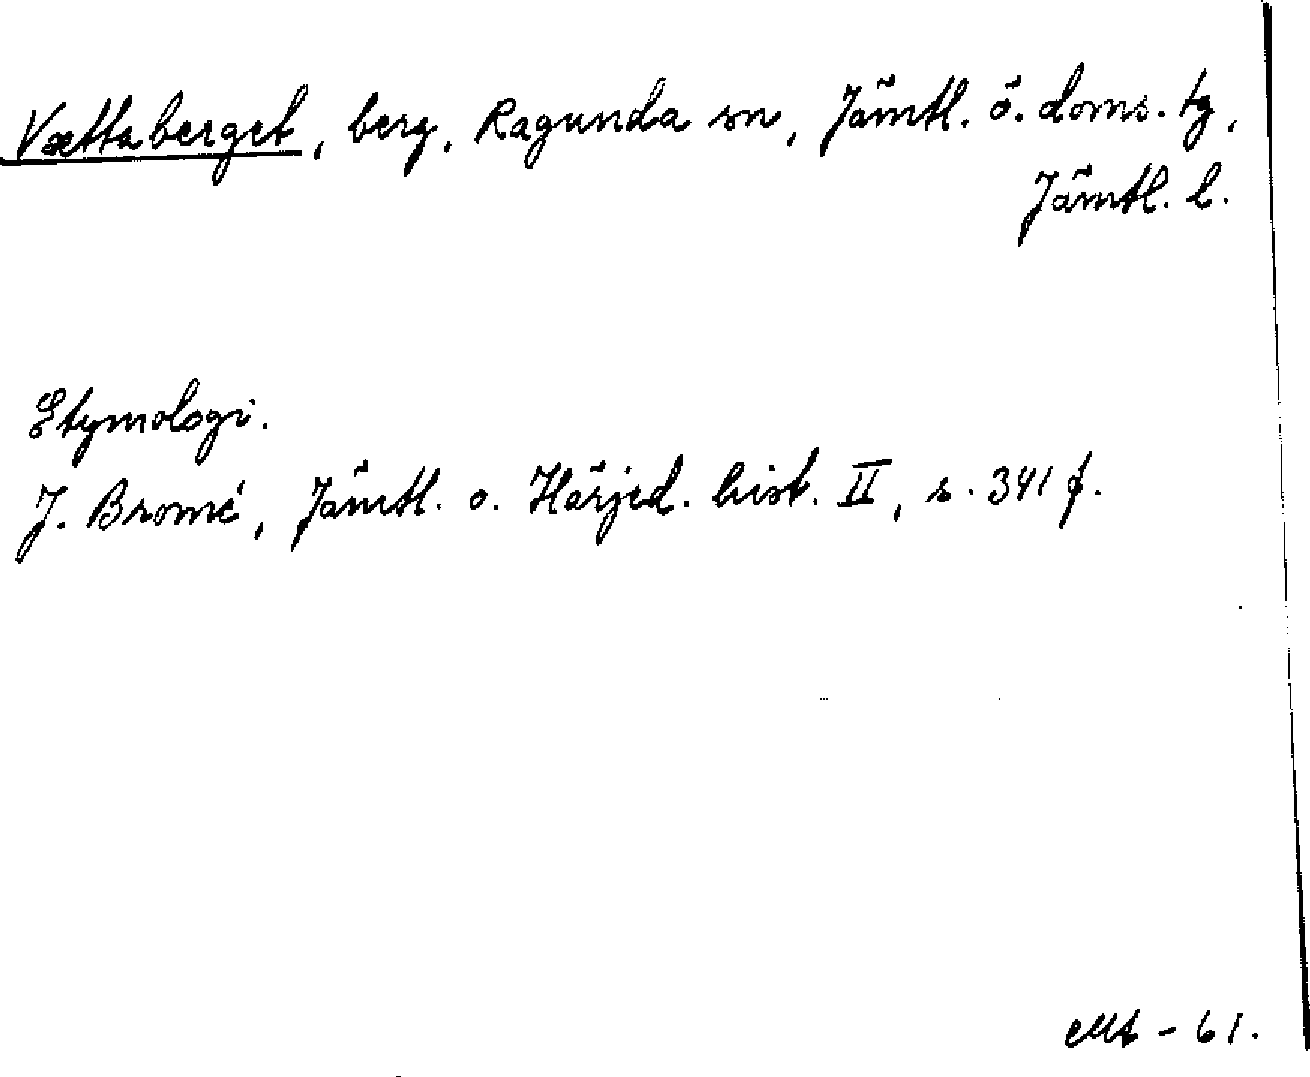 Vættaberget, berg, Ragunda sn, Jämtl. ö. doms. tg,
Jämtl. l.
Etymologi.
J. Bromé, Jämtl. o. Härjed. hist. II, s. 341 f.
- 61.